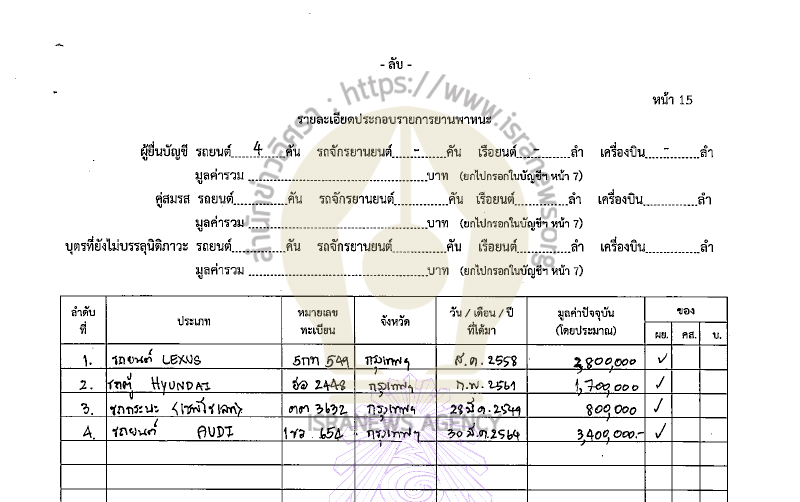 - ลับ -
หน้า 15
รายละเอียดประกอบรายการยานพาหนะ
ผู้ยื่นบัญชี รถยนต์ 4 คัน รถจักรยานยนต์ - คัน เรือยนต์ - ลำ เครื่องบิน - ลำ
มูลค่ารวม ........ บาท (ยกไปกรอกในบัญชีฯ หน้า 7)
คู่สมรส รถยนต์ ........ คัน รถจักรยานยนต์ ........ คัน เรือยนต์ ........ ลำ เครื่องบิน ........ ลำ
มูลค่ารวม ........ บาท (ยกไปกรอกในบัญชีฯ หน้า 7)
บุตรที่ยังไม่บรรลุนิติภาวะ รถยนต์ ........ คัน รถจักรยานยนต์ ........ คัน เรือยนต์ ........ ลำ เครื่องบิน ........ ลำ
มูลค่ารวม ........ บาท (ยกไปกรอกในบัญชีฯ หน้า 7)
ลำดับที่ ประเภท หมายเลขทะเบียน จังหวัด วัน / เดือน / ปี ที่ได้มา มูลค่าปัจจุบัน (โดยประมาณ) ของ
ผย. คส. บ.
1. รถยนต์ LEXUS 5กท 549 กรุงเทพฯ ส.ค. 2558 2,800,000 ✓
2. รถตู้ HYUNDAI ฮอ 2448 กรุงเทพฯ ก.พ. 2561 1,700,000 ✓
3. รถกระบะ (เชฟโรเลท) ตต 3632 กรุงเทพฯ 28 มี.ค. 2549 800,000 ✓
4. รถยนต์ AUDI 1ขอ 654 กรุงเทพฯ 30 มี.ค. 2564 3,400,000.- ✓
สำนักข่าวอิศรา : https://www.isranews.org
ISRANEWS AGENCY